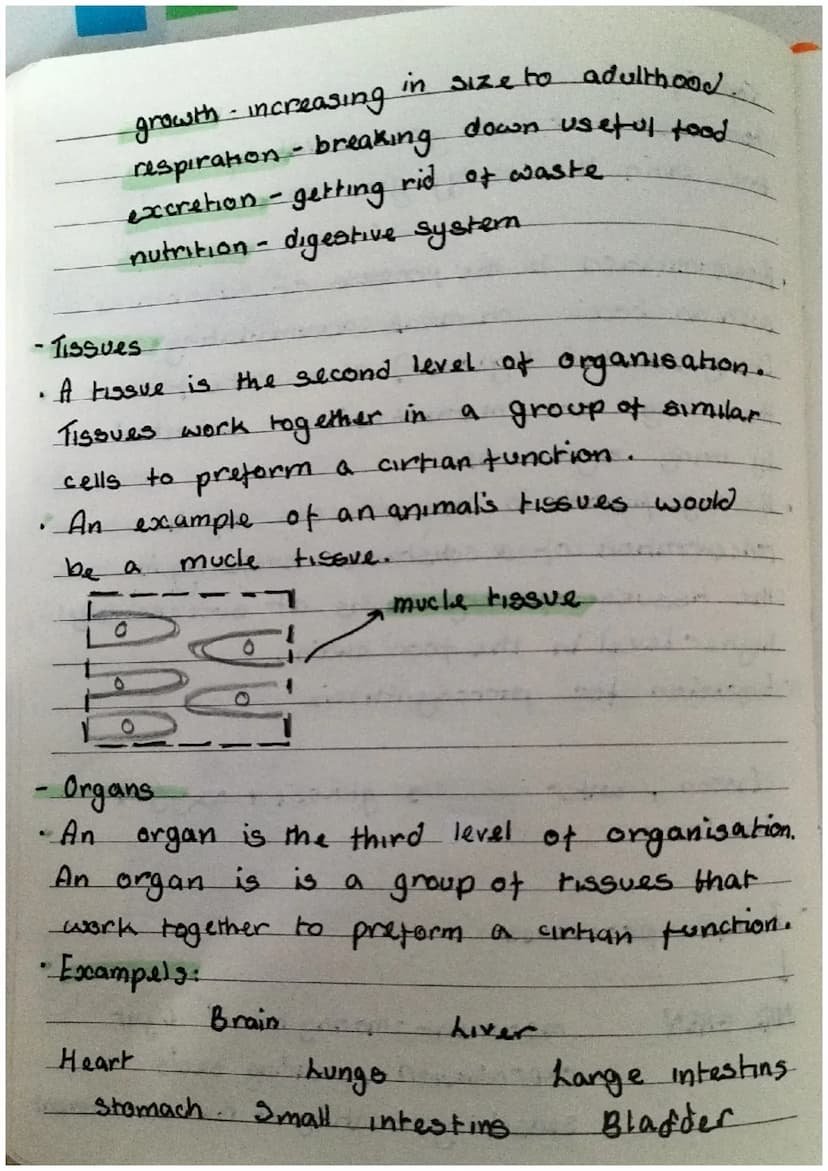 growth - increasing in size to adulthood.
respiration - breaking down useful food
excretion - getting rid of waste
nutrition - digestive system
- Tissues
• A tissue is the second level of organisation.
Tissues work together in a group of similar
cells to preform a cirtian function.
• An example of an animal's tissues would
be a mucle tissue.
mucle tissue
- Organs
• An organ is the third level of organisation.
An organ is is a group of tissues that
work together to preform a cirtian function.
• Exampels:
Brain Liver
Heart Lungs Large intestins
Stomach Small intestins Bladder